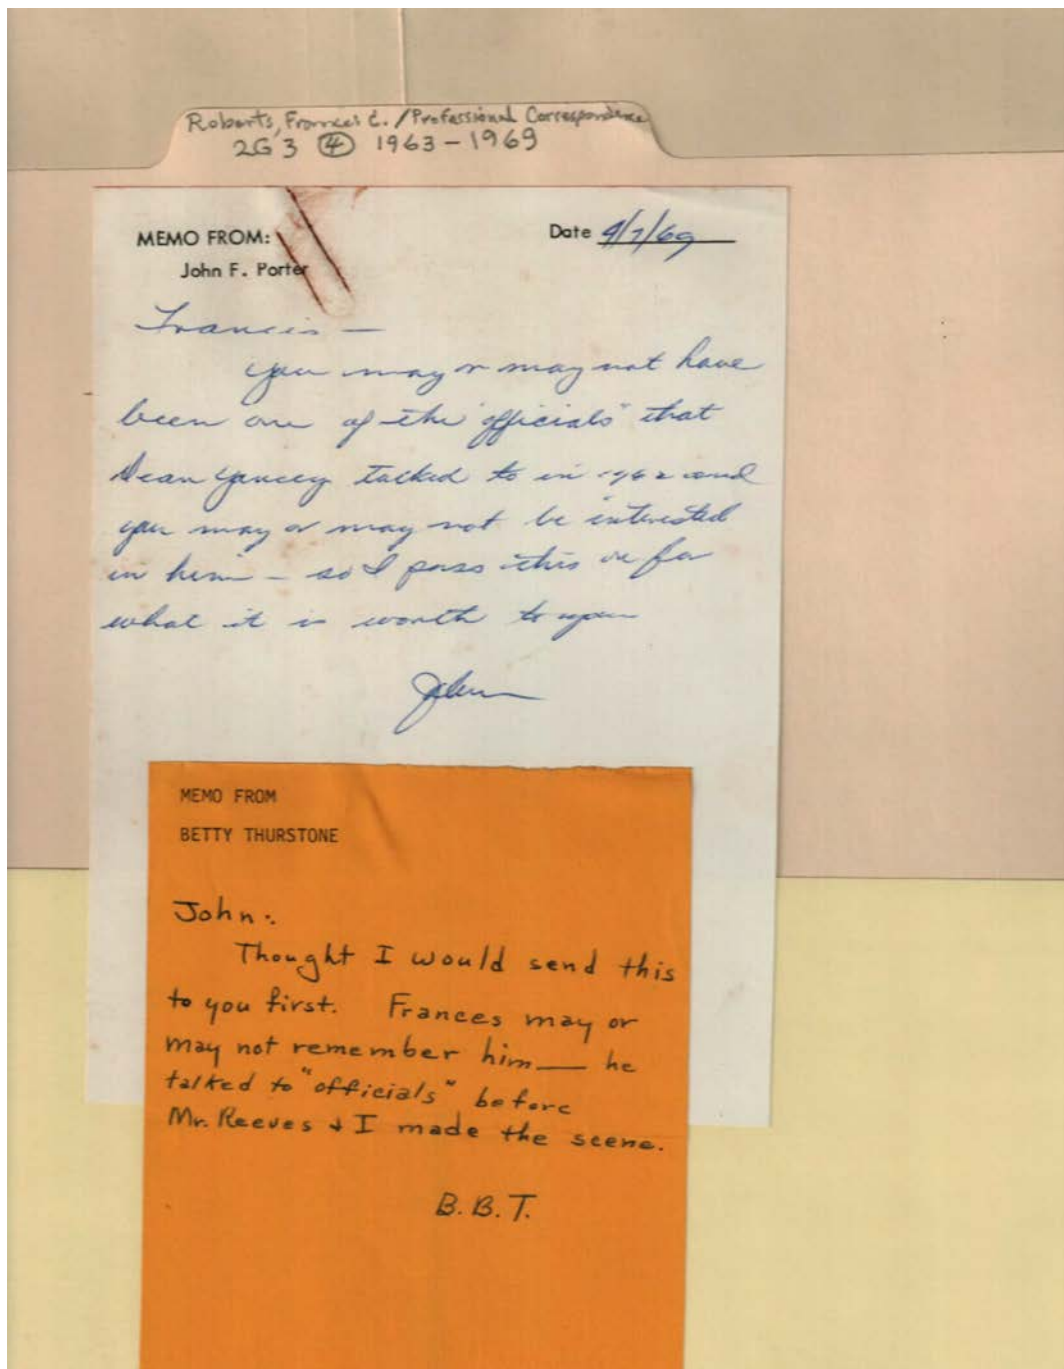 Roberts, Frances C. / Professional Correspondence
2G3 ④ 1963-1969
MEMO FROM:
John F. Porter
Date 9/7/69
Francis —
you may or may not have
been one of the "officials" that
Dean Yancey talked to in 1962 and
you may or may not be interested
in him - so I pass this on for
what it is worth to you
John
MEMO FROM
BETTY THURSTONE
John:
Thought I would send this
to you first. Frances may or
may not remember him — he
talked to "officials" before
Mr. Reeves & I made the scene.
B.B.T.